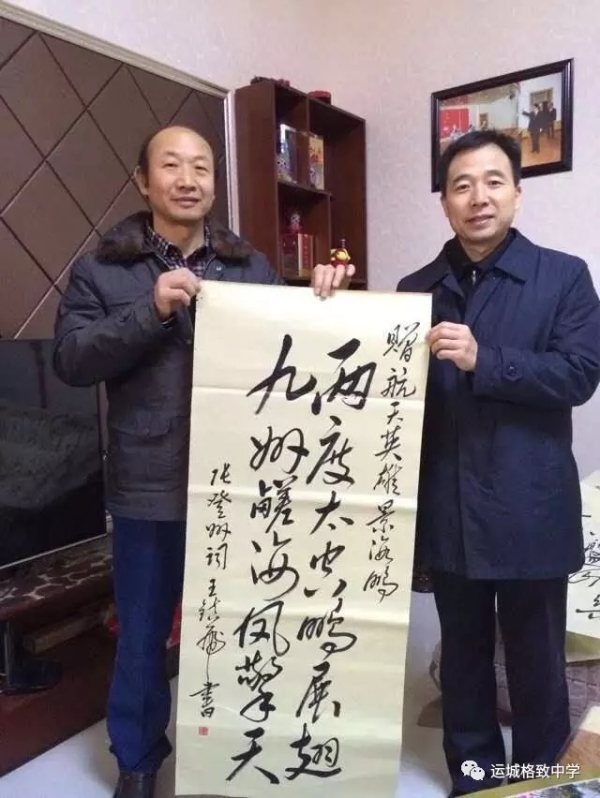 赠航天英雄景海鹏
两度太空鹏展翅
九州鹾海凤擎天
张登州词 王 書
运城格致中学